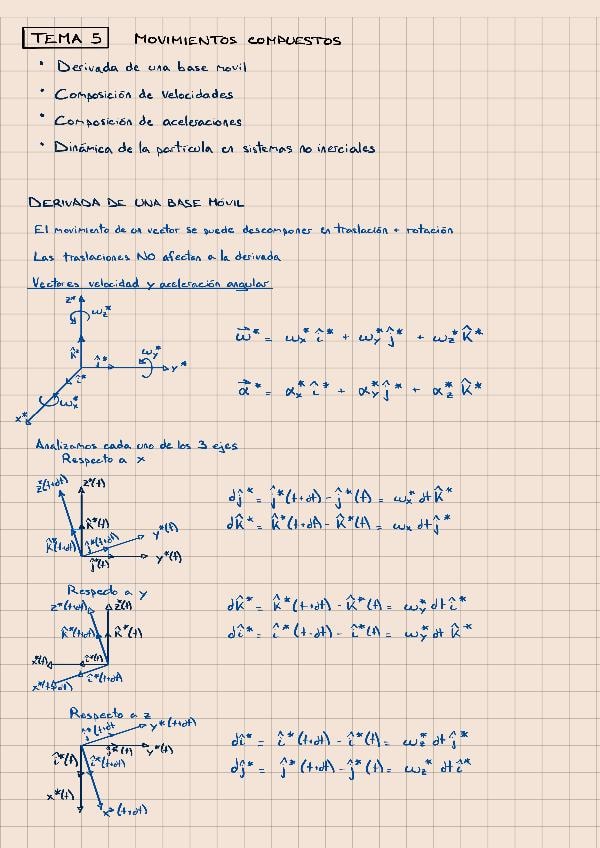 TEMA 5 MOVIMIENTOS COMPUESTOS
• Derivada de una base movil
• Composición de velocidades
• Composición de aceleraciones
• Dinámica de la partícula en sistemas no inerciales
DERIVADA DE UNA BASE MÓVIL
El movimiento de un vector se puede descomponer en traslación + rotación
Las traslaciones NO afectan a la derivada
Vectores velocidad y aceleración angular
z*
ωz*
k̂* ĵ* ωy* y*
î*
ωx*
x*
ω⃗* = ωx* î* + ωy* ĵ* + ωz* k̂*
α⃗* = αx* î* + αy* ĵ* + αz* k̂*
Analizamos cada uno de los 3 ejes
Respecto a x
z*(t+dt) z*(t)
k̂*(t)
k̂*(t+dt) ĵ*(t+dt) y*(t)
ĵ*(t) y*(t)
dĵ* = ĵ*(t+dt) - ĵ*(t) = ωx* dt k̂*
dk̂* = k̂*(t+dt) - k̂*(t) = ωx dt ĵ*
Respecto a y
z*(t+dt) z*(t)
k̂*(t+dt) k̂*(t)
x*(t) î*(t)
x*(t+dt) î*(t+dt)
dk̂* = k̂*(t+dt) - k̂*(t) = ωy* dt î*
dî* = î*(t+dt) - î*(t) = ωy* dt k̂*
Respecto a z
ĵ*(t+dt) y*(t+dt)
ĵ*(t) y*(t)
î*(t) î*(t+dt)
x*(t)
x*(t+dt)
dî* = î*(t+dt) - î*(t) = ωz* dt ĵ*
dĵ* = ĵ*(t+dt) - ĵ*(t) = ωz* dt î*